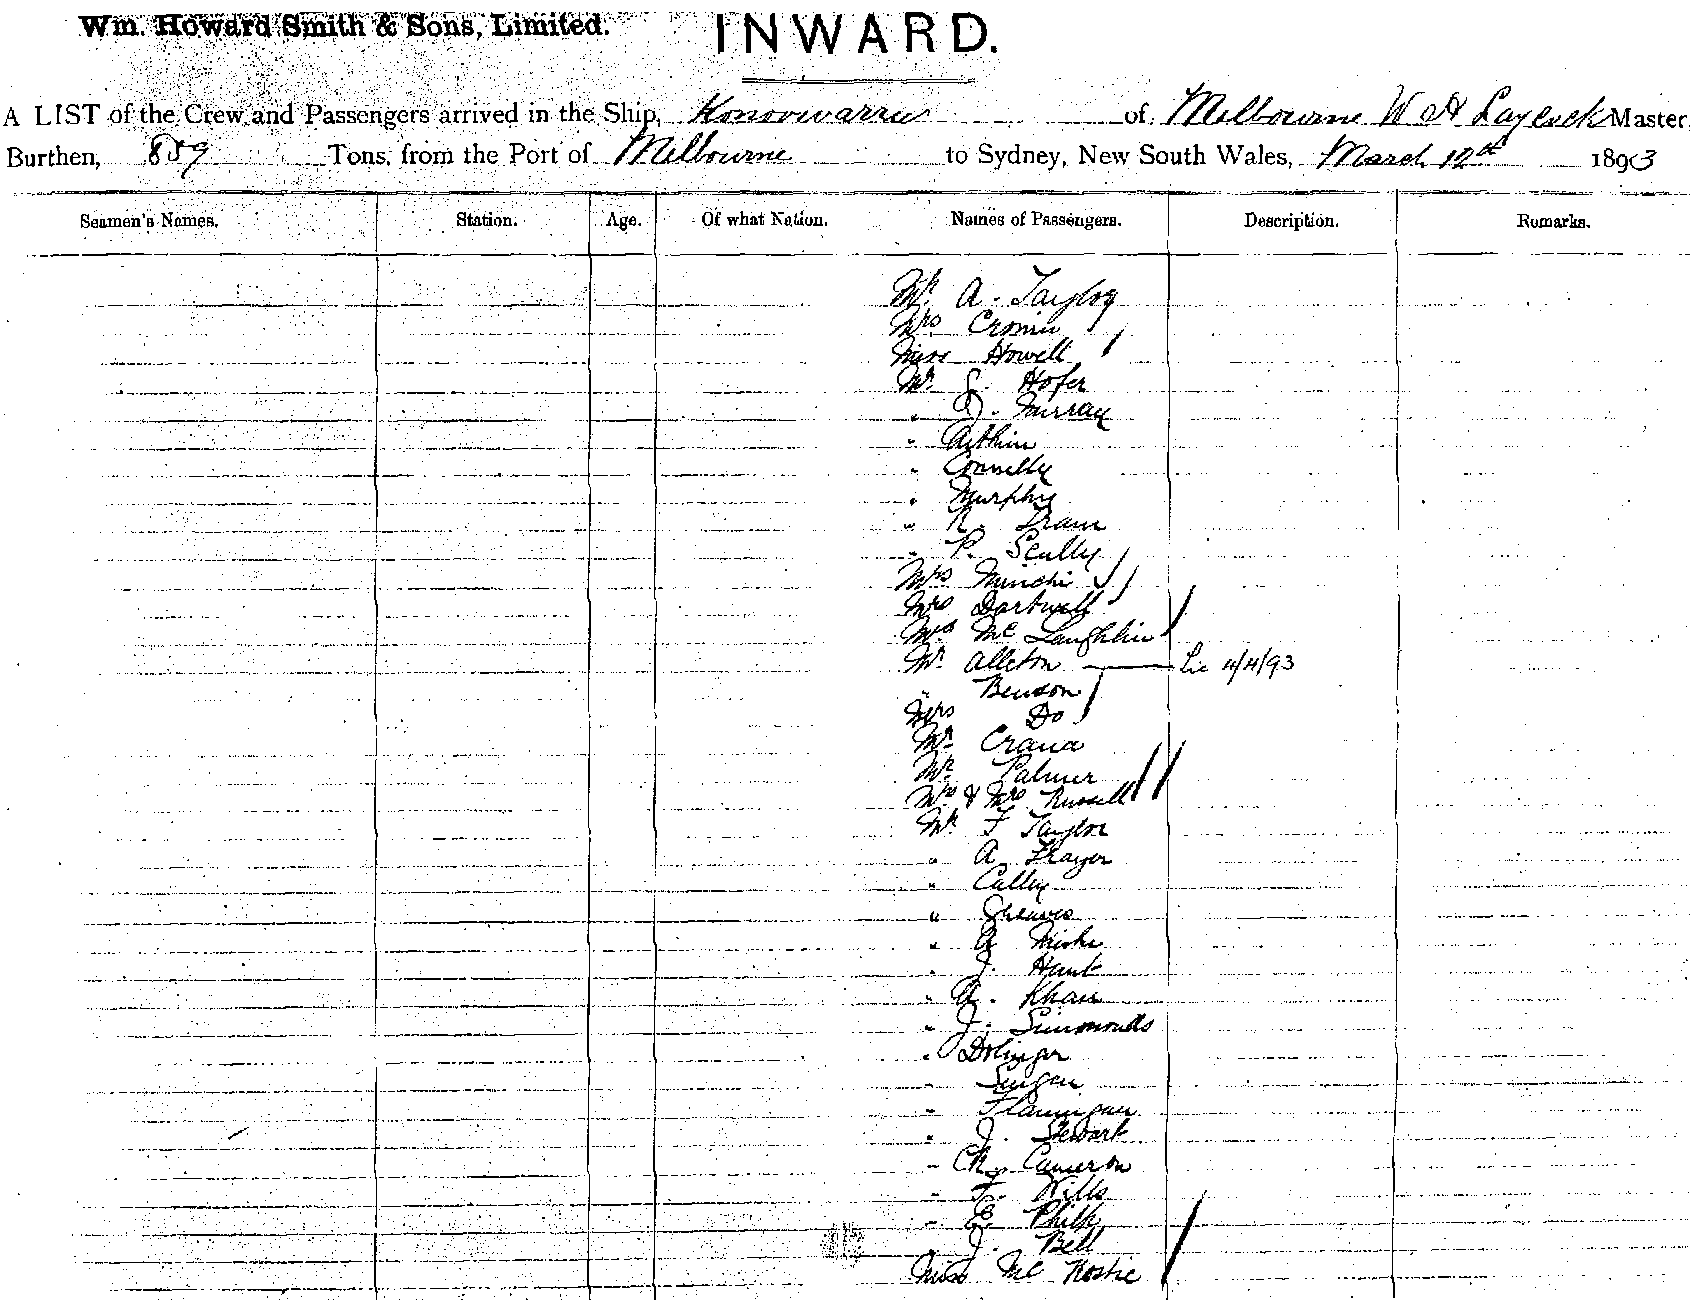 Wm. Howard Smith & Sons, Limited.
INWARD.
A LIST of the Crew and Passengers arrived in the Ship, Konoowarra of Melbourne W H Laycock Master
Burthen, 889 Tons, from the Port of Melbourne to Sydney, New South Wales, March 12th 1893
Seamen's Names. Station. Age. Of what Nation. Names of Passengers. Description. Remarks.
Mr. A. Taylor
Mrs Cronin
Miss Howell
Mr. J. Hofer
" J. Murray
"
" Connelly
" Murphy
" R.
" P. Scully
Mrs
Mrs
Mrs McLaughlin
Mr. Alleton Lic 4/4/93
" Benson
Mrs Do
Mr. Crana
Mr. Palmer
Mr & Mrs Russell
Mr. F Taylor
" A
" Culley
" Greaves
" A
" J. Hunt
" A. Khan
" J. Simmonds
" Dolinger

" Flannigan
" J. Stewart
" Cameron
" F. Wills
" E.
" J. Bell
Miss Mc